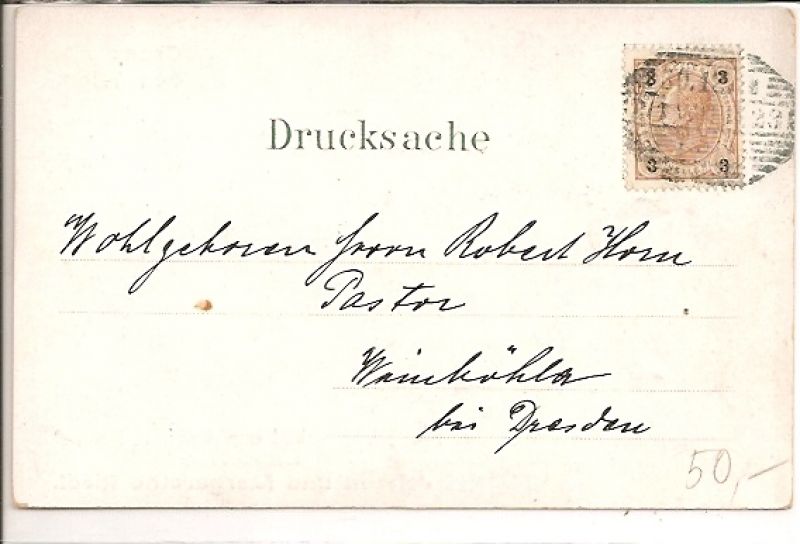 Drucksache
3 3
3 3
Wohlgeboren Herrn Robert Horn
Pastor
Weinböhla
bei Dresden
50,–